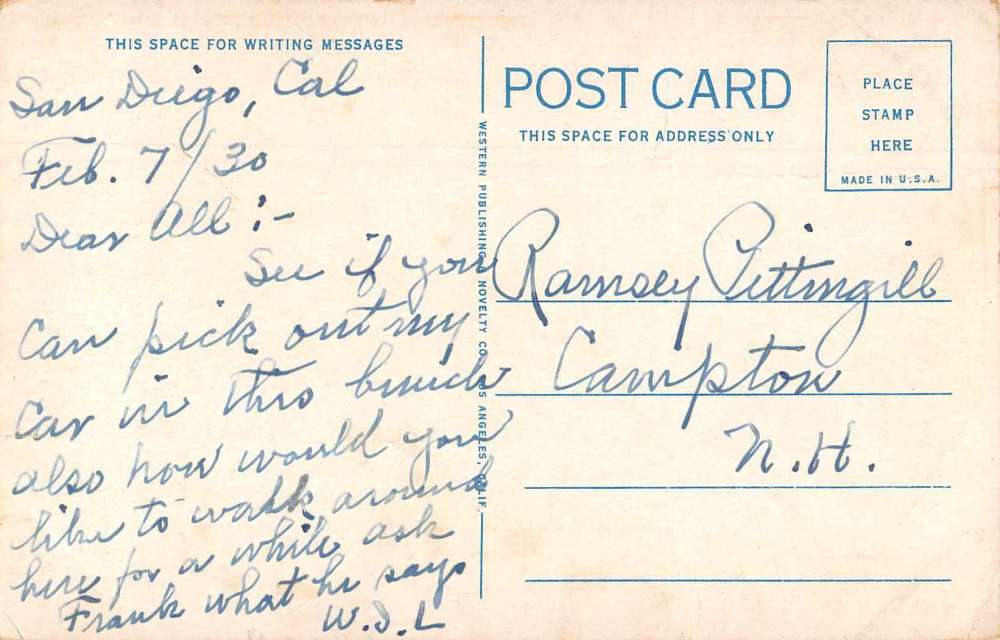 THIS SPACE FOR WRITING MESSAGES
San Diego, Cal
Feb. 7/30
Dear All :-
See if you
can pick out my
car in this bunch
also how would you
like to walk around
here for a while ask
Frank what he says
W.S.L
WESTERN PUBLISHING & NOVELTY CO., LOS ANGELES, CALIF.
POST CARD
THIS SPACE FOR ADDRESS ONLY
PLACE
STAMP
HERE
MADE IN U.S.A.
Ramsey Pittingill
Campton
N.H.